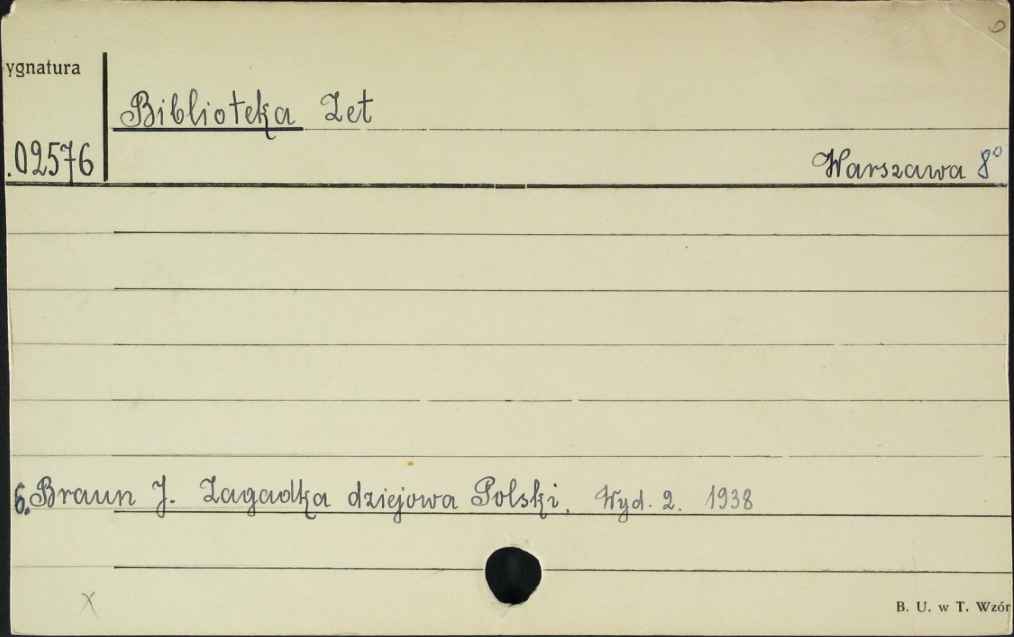 ygnatura
Biblioteka Zet
.02576
Warszawa 8°
6. Braun J. Zagadka dziejowa Polski. Wyd. 2. 1938
x
B. U. w T. Wzór